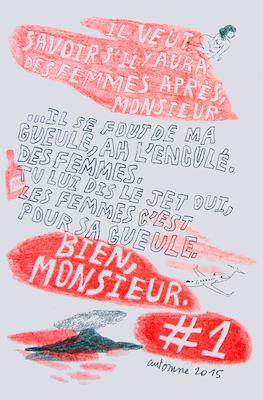 IL VEUT
SAVOIR S'IL Y AURA
DES FEMMES APRÈS,
MONSIEUR.
...IL SE FOUT DE MA
GUEULE, AH L'ENCULÉ.
DES FEMMES.
TU LUI DIS LE JET OUI,
LES FEMMES C'EST
POUR SA GUEULE.
BIEN,
MONSIEUR.
#1
automne 2015